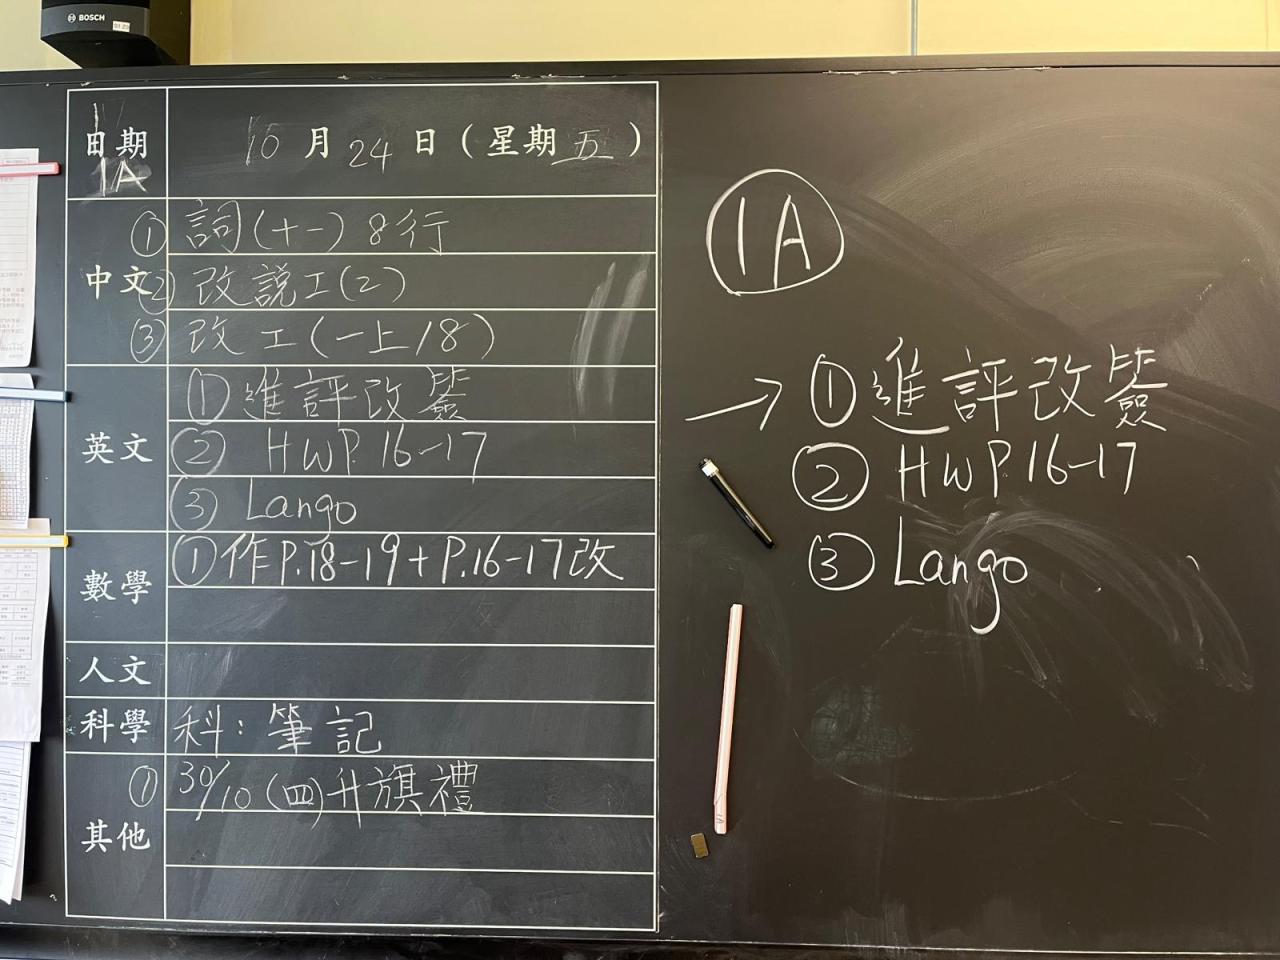 BOSCH
日期 10月24日(星期五)
1A
中文
① 詞(十一) 8行
② 改說工(2)
③ 改工(一上18)
英文
① 進評改簽
② HW P.16-17
③ Lango
數學
① 作P.18-19+P.16-17改
人文
科學 科:筆記
其他
① 30/10 (四)升旗禮
1A
→ ① 進評改簽
② HW P.16-17
③ Lango